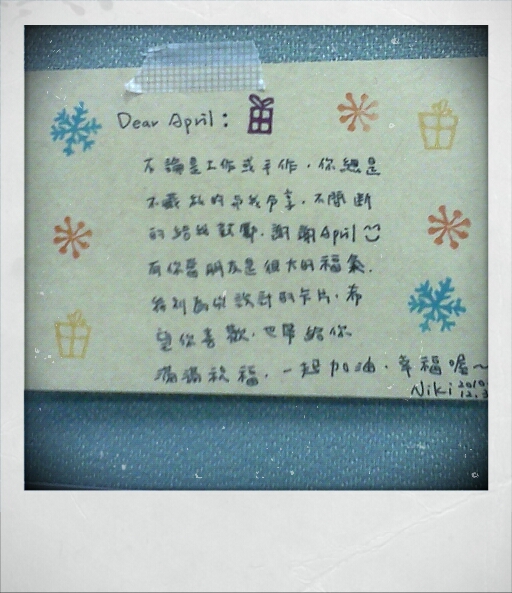 Dear April:
不論是工作或手作,你總是
不藏私的與我分享,不間斷
的給我鼓勵,謝謝April
有你當朋友是很大的福氣.
特別為您設計的卡片,希
望你喜歡,也帶給你
滿滿祝福,一起加油,幸福喔~
Niki 2010.
12.3